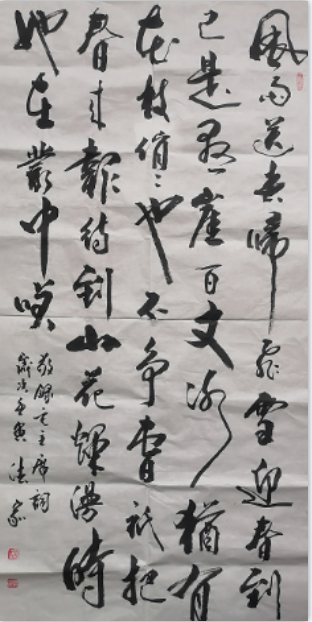 風雨送春歸飛雪迎春到
已是懸崖百丈冰猶有
花枝俏〻也不爭春祇把
春来報待到山花爛漫時
她在叢中笑
敬録毛主席詞